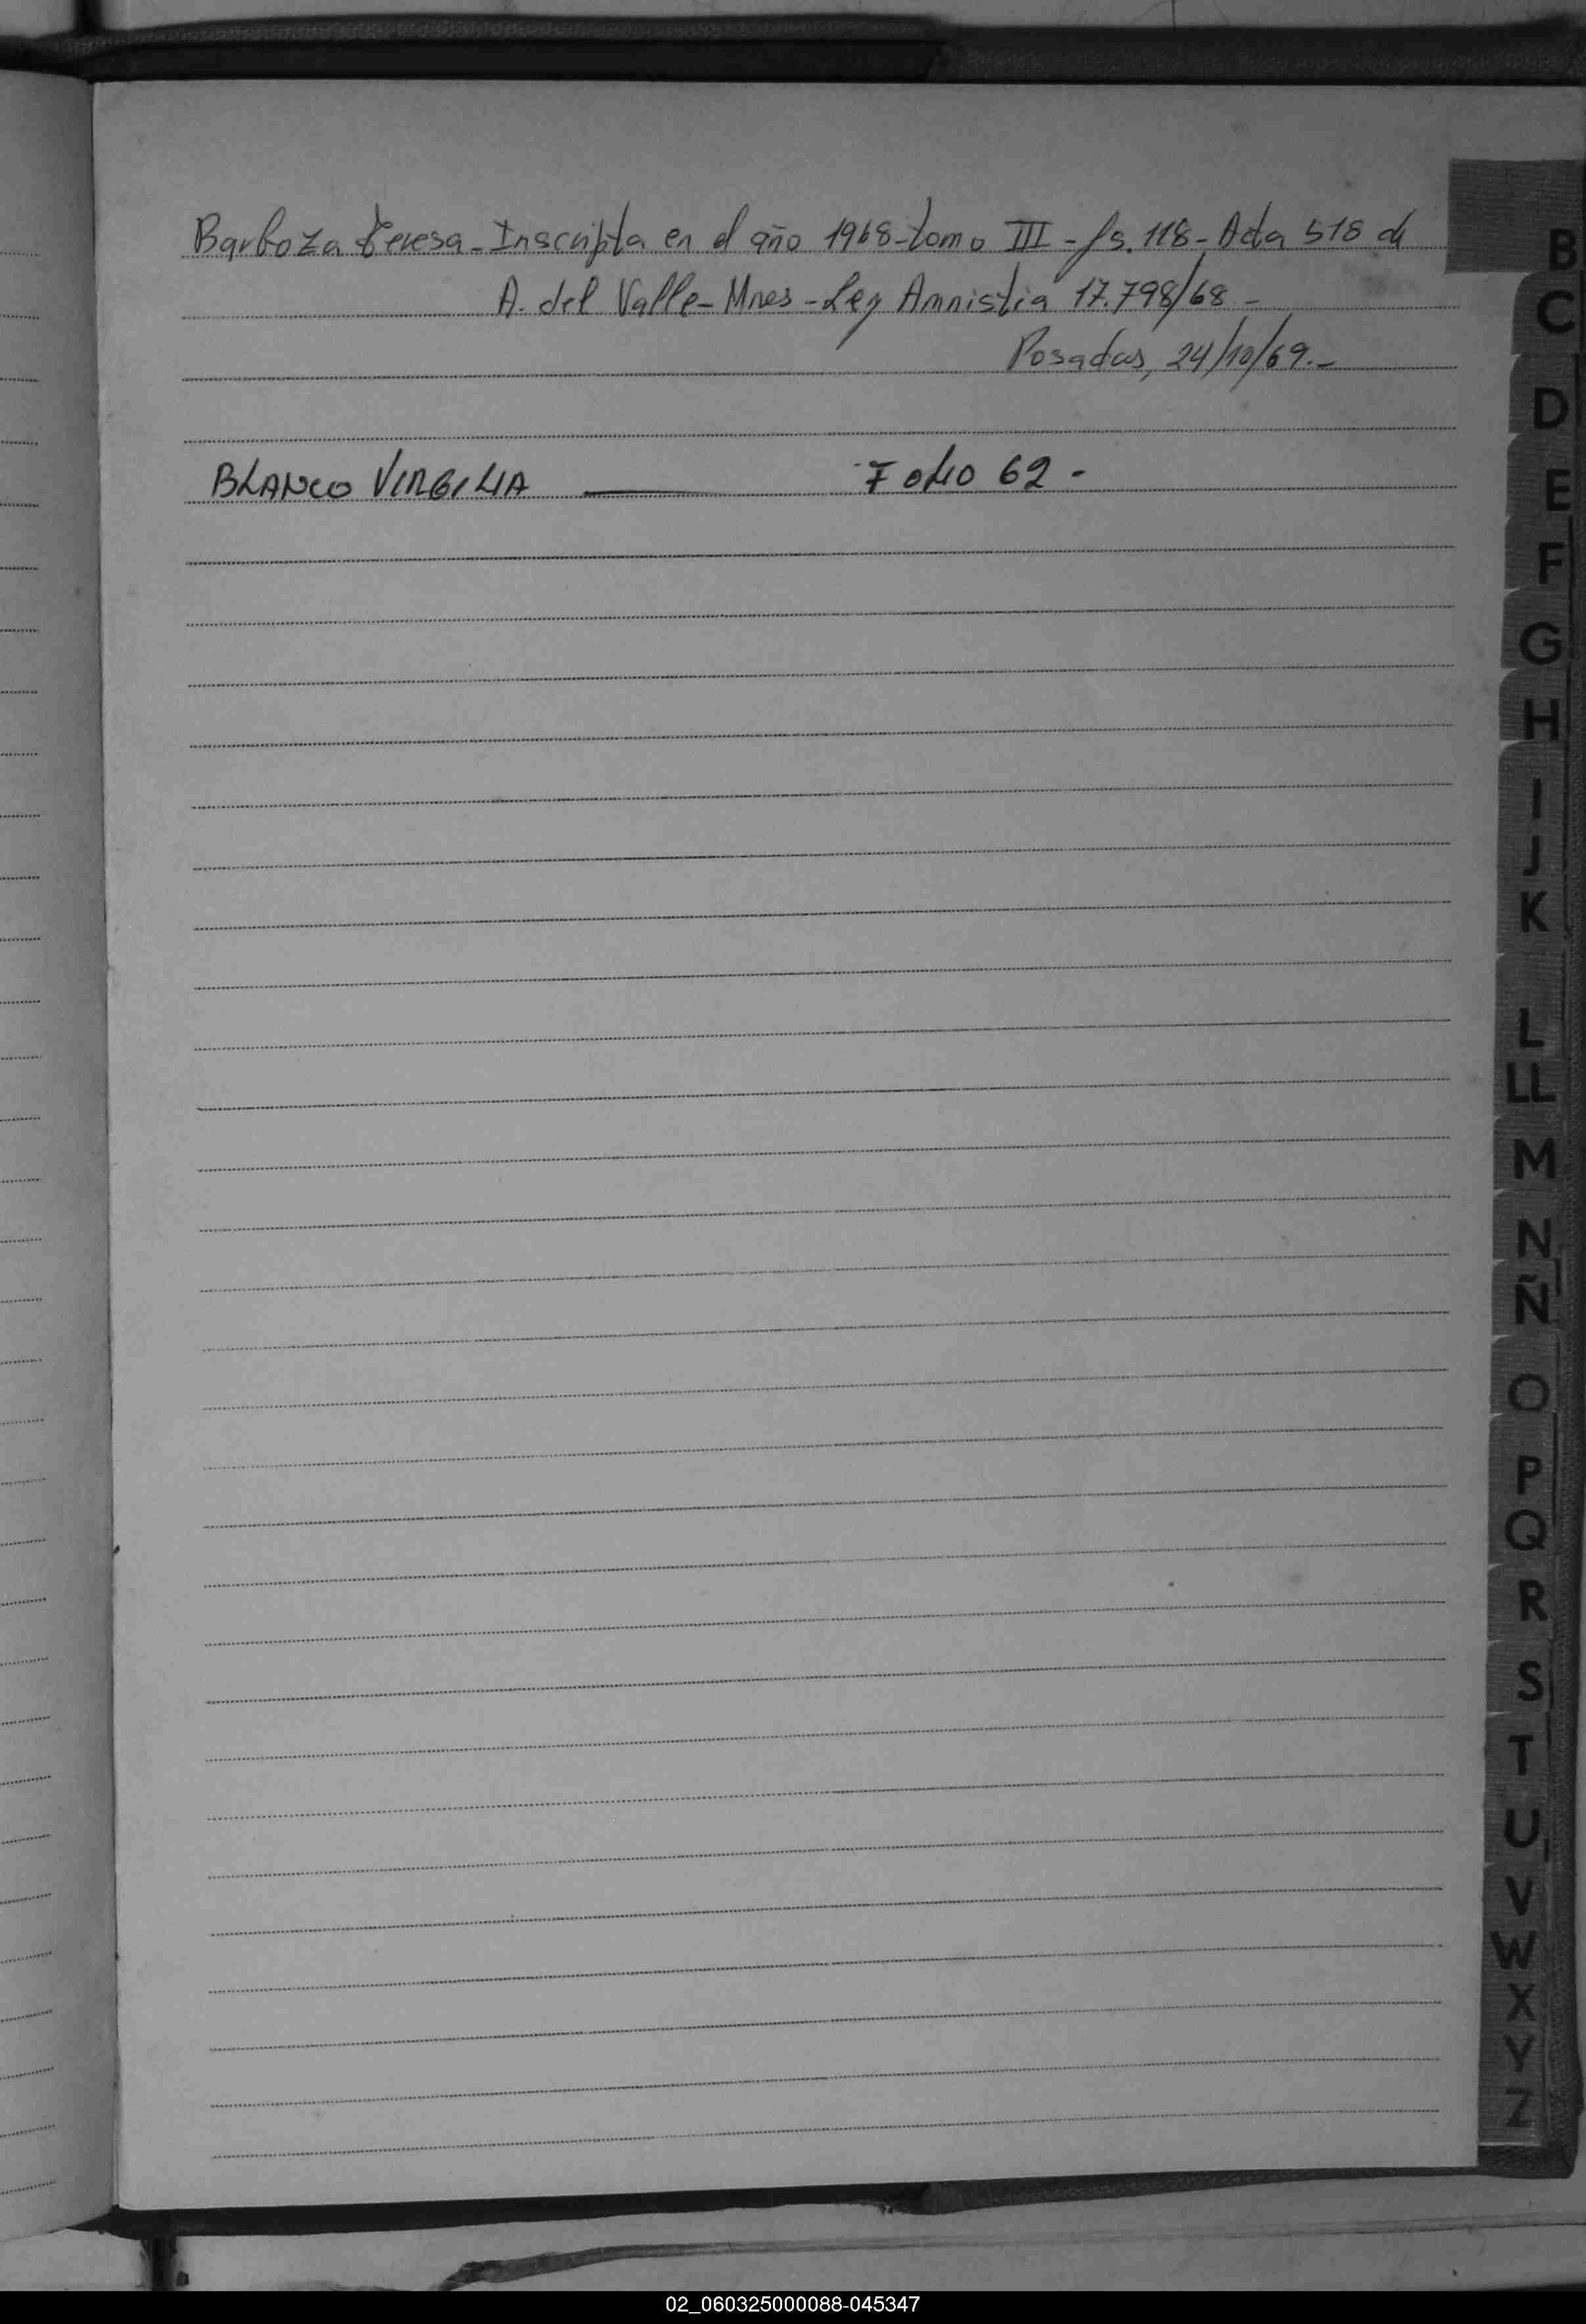 Barboza Teresa - Inscripta en el año 1968 - tomo III - fs. 118 - Acta 518 de
A. del Valle - Mnes - Ley Amnistia 17.798/68 -
Posadas, 24/10/69.-
BLANCO VIRGILIA ——— FOLIO 62 -
B
C
D
E
F
G
H
I
J
K
L
LL
M
N
Ñ
O
P
Q
R
S
T
U
V
W
X
Y
Z
02_060325000088-045347